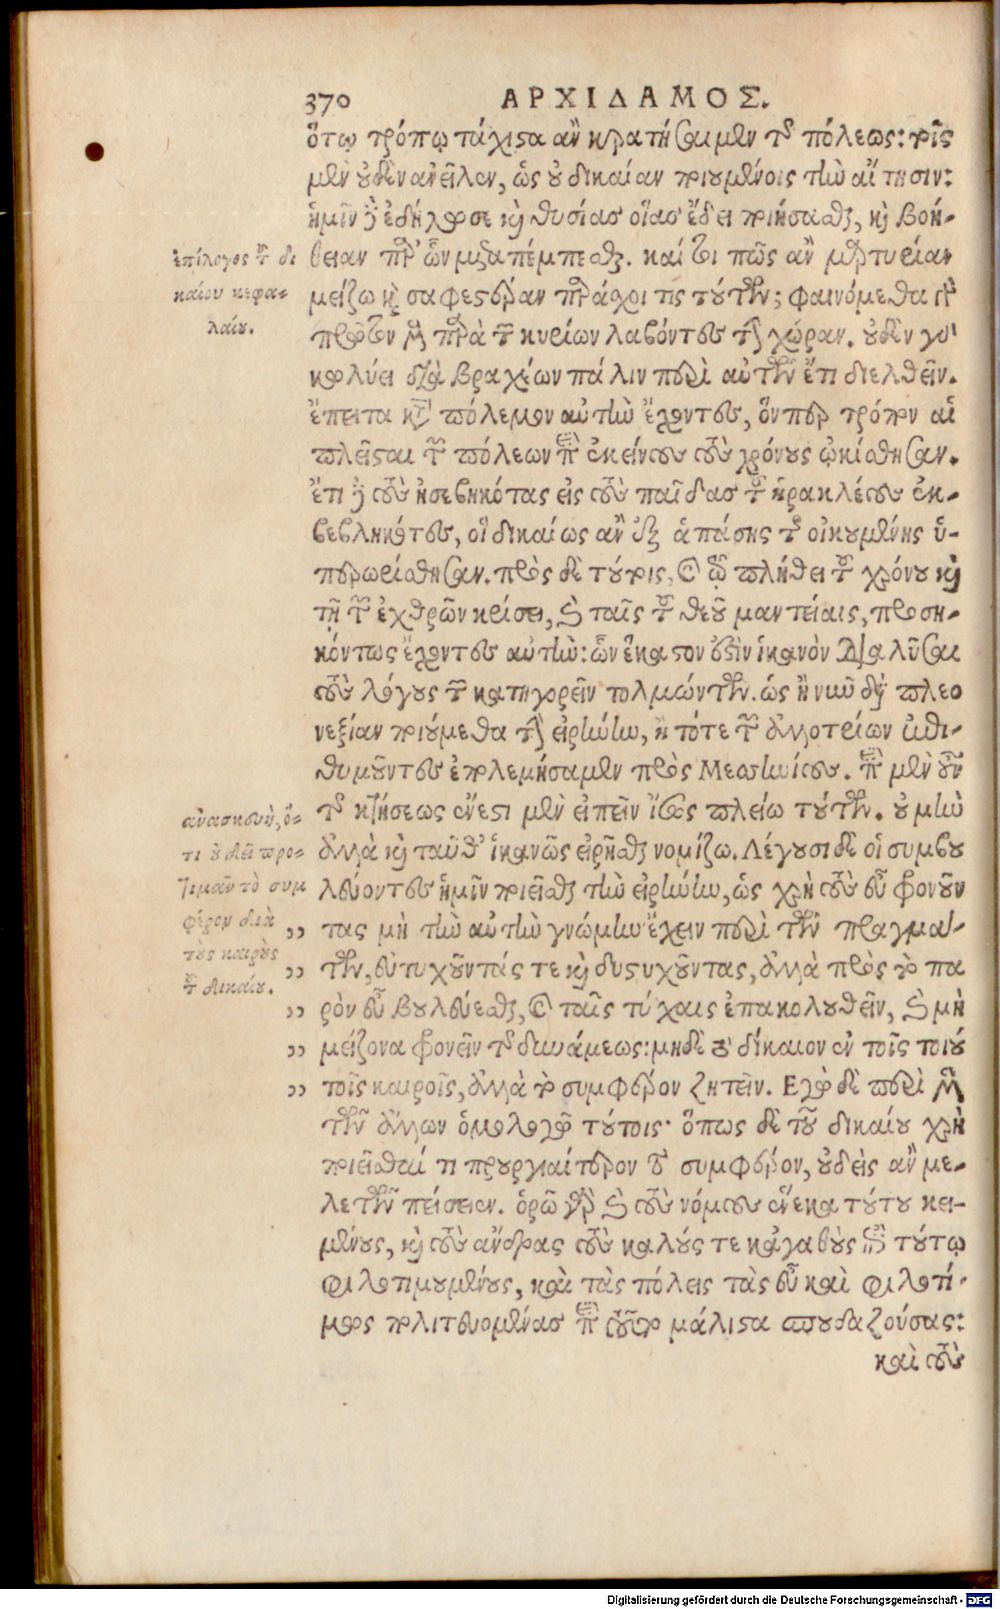 370 ΑΡΧΙΔΑΜΟΣ.
ὅτῳ τρόπῳ τάχιστα ἂν κρατήσαιμεν τῆς πόλεως: τοῖς
μὲν οὐδὲν ἀνεῖλεν, ὡς οὐ δικαίαν ποιουμένοις τὴν αἴτησιν:
ἡμῖν δὲ ἐδήλωσε καὶ θυσίας οἵας ἔδει ποιήσασθαι, καὶ βοή-
θειαν παρ' ὧν μεταπέμπεσθαι. καί τοι πῶς ἂν μαρτυρίαν
ἐπίλογος τοῦ δι
καίου κεφα-
λαίου.
μείζω καὶ σαφεστέραν παράσχοι τις τούτων; φαινόμεθα γὰρ
πρῶτον μὲν παρὰ τῶν κυρίων λαβόντες τὴν χώραν. οὐδὲν γὰρ
κωλύει διὰ βραχέων πάλιν περὶ αὐτῶν ἔτι διελθεῖν.
ἔπειτα κατὰ πόλεμον αὐτὴν ἔχοντες, ὅνπερ τρόπον αἱ
πλεῖσται τῶν πόλεων ἐπ' ἐκείνους τοὺς χρόνους ᾠκίσθησαν.
ἔτι δὲ τοὺς ἠσεβηκότας εἰς τοὺς παῖδας τοῦ ἡρακλέους ἐκ-
βεβληκότες, οἳ δικαίως ἂν ἐξ ἁπάσης τῆς οἰκουμένης ὑ-
περωρίσθησαν. πρὸς δὲ τούτοις, καὶ τῷ πλήθει τοῦ χρόνου καὶ
τῇ τῶν ἐχθρῶν κρίσει, καὶ ταῖς τοῦ θεοῦ μαντείαις, προση-
κόντως ἔχοντες αὐτὴν: ὧν ἕκαστον ἐστὶν ἱκανὸν διαλῦσαι
τοὺς λόγους τῶν κατηγορεῖν τολμώντων. ὡς ἢ νῦν διὰ πλεο
νεξίαν ποιούμεθα τὴν εἰρήνην, ἢ τότε τῶν ἀλλοτρίων ἐπι-
θυμοῦντες ἐπολεμήσαμεν πρὸς Μεσηνίους. περὶ μὲν οὖν
τῆς κτήσεως ἔνεστι μὲν εἰπεῖν ἴσως πλείω τούτων. οὐ μὴν
ἀνασκευὴ, ὅ-
τι οὐ δεῖ προ-
τιμᾶν τὸ συμ
φέρον διὰ
τοὺς καιροὺς
τοῦ δικαίου.
ἀλλὰ καὶ ταῦθ' ἱκανῶς εἰρῆσθαι νομίζω. Λέγουσι δὲ οἱ συμβου
λεύοντες ἡμῖν ποιεῖσθαι τὴν εἰρήνην, ὡς χρὴ τοὺς εὖ φρονοῦν
,, τας μὴ τὴν αὐτὴν γνώμην ἔχειν περὶ τῶν πραγμά-
,, των, εὐτυχοῦντάς τε καὶ δυστυχοῦντας, ἀλλὰ πρὸς τὸ πα
,, ρὸν εὖ βουλεύεσθαι, καὶ ταῖς τύχαις ἐπακολουθεῖν, καὶ μὴ
,, μείζονα φρονεῖν τῆς δυνάμεως: μηδὲ τὸ δίκαιον ἐν τοῖς τοιού
,, τοις καιροῖς, ἀλλὰ τὸ συμφέρον ζητεῖν. Ἐγὼ δὲ περὶ μὲν
τῶν ἄλλων ὁμολογῶ τούτοις· ὅπως δὲ τοῦ δικαίου χρὴ
ποιεῖσθαί τι προὐργιαίτερον τὸ συμφέρον, οὐδεὶς ἄν με-
λετῶν πείσειεν. ὁρῶ γὰρ καὶ τοὺς νόμους ἕνεκα τούτου κει-
μένους, καὶ τοὺς ἄνδρας τοὺς καλούς τε κἀγαθοὺς ἐπὶ τούτῳ
φιλοτιμουμένους, καὶ τὰς πόλεις τὰς εὖ καὶ φιλοτί-
μως πολιτευομένας περὶ τοῦτο μάλιστα σπουδαζούσας:
καὶ τοὺς
Digitalisierung gefördert durch die Deutsche Forschungsgemeinschaft - DFG